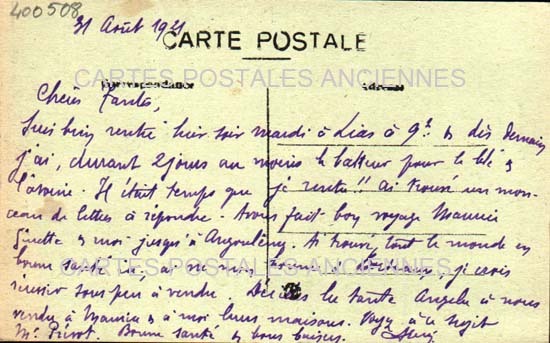 400508
31 Août 1921
CARTE POSTALE
CARTES POSTALES ANCIENNES
Correspondance
Adresse
Chères Tantes,
Suis bien rentré hier soir mardi à Lias à 9h & dès demain
j'ai, durant 2 jours au moins le batteur pour le blé &
l'avoine. Il était temps que je rentre!! Ai trouvé un mon-
ceau de lettres à répondre. Avons fait bon voyage Maurice
Ginette & moi jusqu'à Angoulême. Ai trouvé tout le monde en
bonne santé
réussir sous peu à vendre. tante Angela à nous
vendre à Maurice & à moi leurs maisons. Voyez à ce sujet
Mr Prévot. Bonne santé & bons baisers.